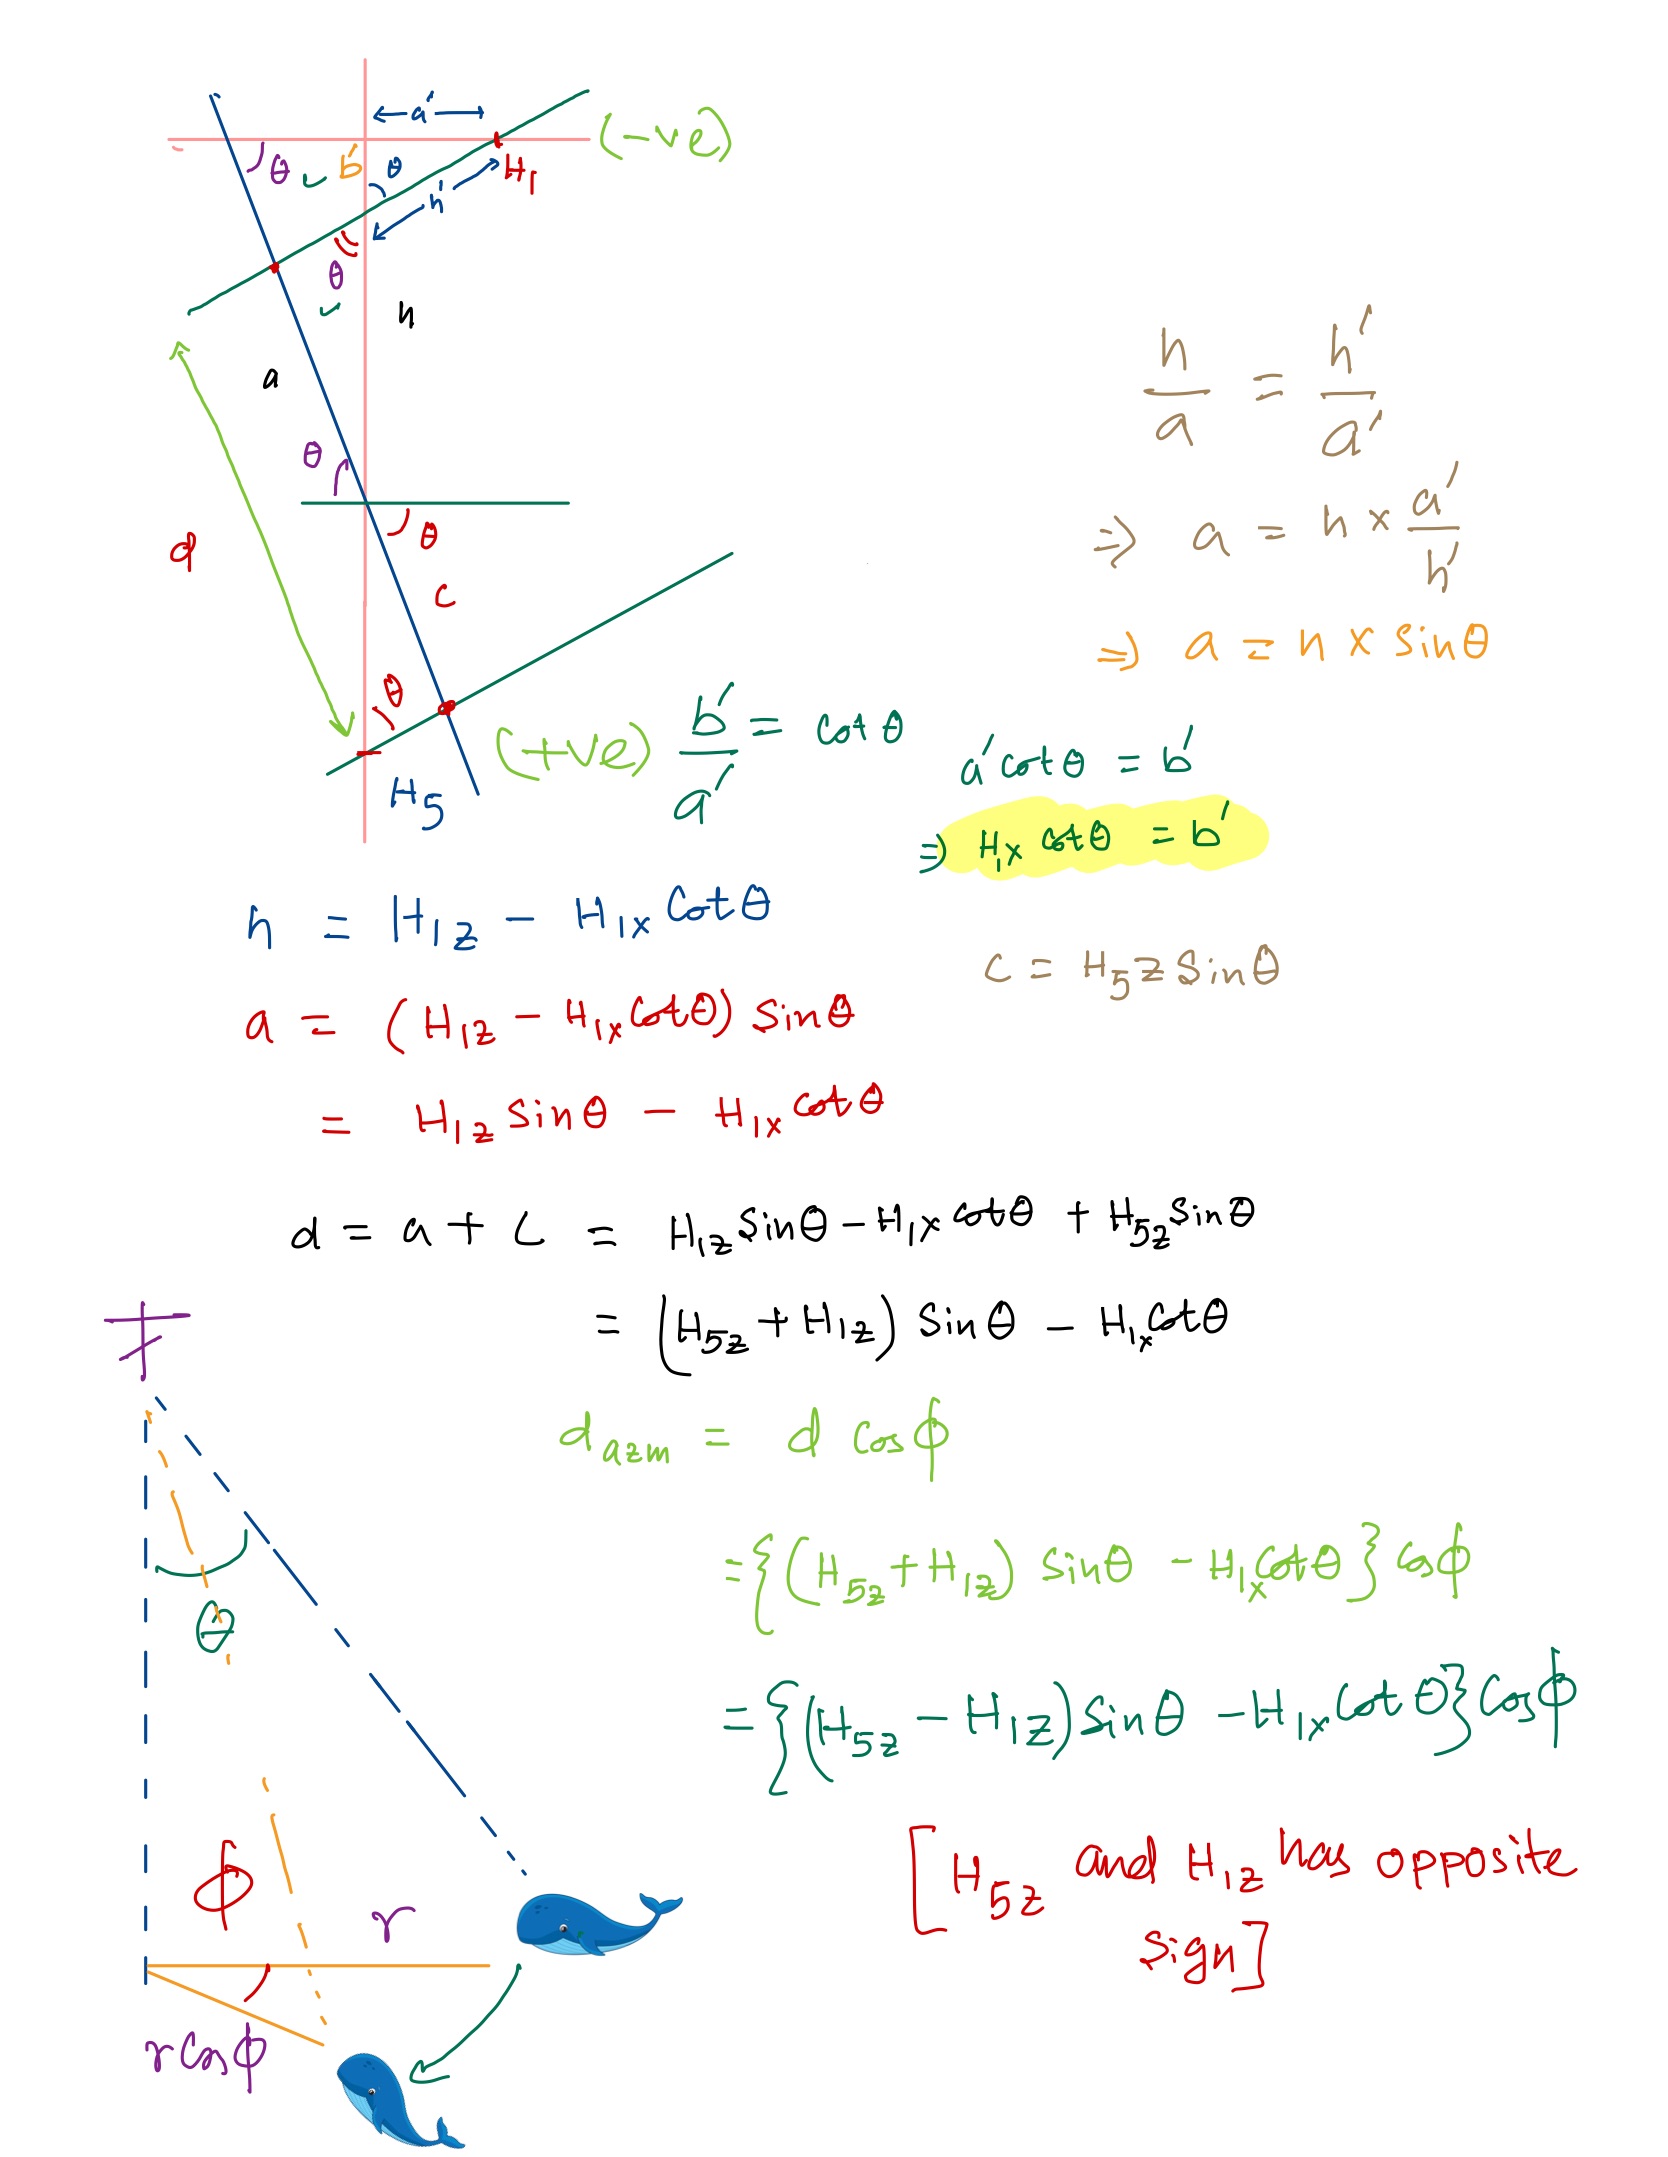 a'
(-ve)
θ b' θ
H₁
h'
θ
h
a
θ
θ
d
c
θ
(+ve)
H₅
h/a = h'/a'
⇒ a = h × a'/h'
⇒ a = h × sinθ
b'/a' = cotθ
a' cotθ = b'
⇒ H₁ₓ cotθ = b'
h = H₁z - H₁ₓ Cotθ
c = H₅z Sinθ
a = (H₁z - H₁ₓ Cotθ) Sinθ
= H₁z Sinθ - H₁ₓ Cotθ
d = a + c = H₁z Sinθ - H₁ₓ cotθ + H₅z Sinθ
= (H₅z + H₁z) Sinθ - H₁ₓ Cotθ
d azm = d Cosϕ
= {(H₅z + H₁z) Sinθ - H₁ₓ Cotθ} Cosϕ
= {(H₅z - H₁z) Sinθ - H₁ₓ Cotθ} Cosϕ
[H₅z and H₁z has opposite
sign]
θ
ϕ
r
r Cosϕ